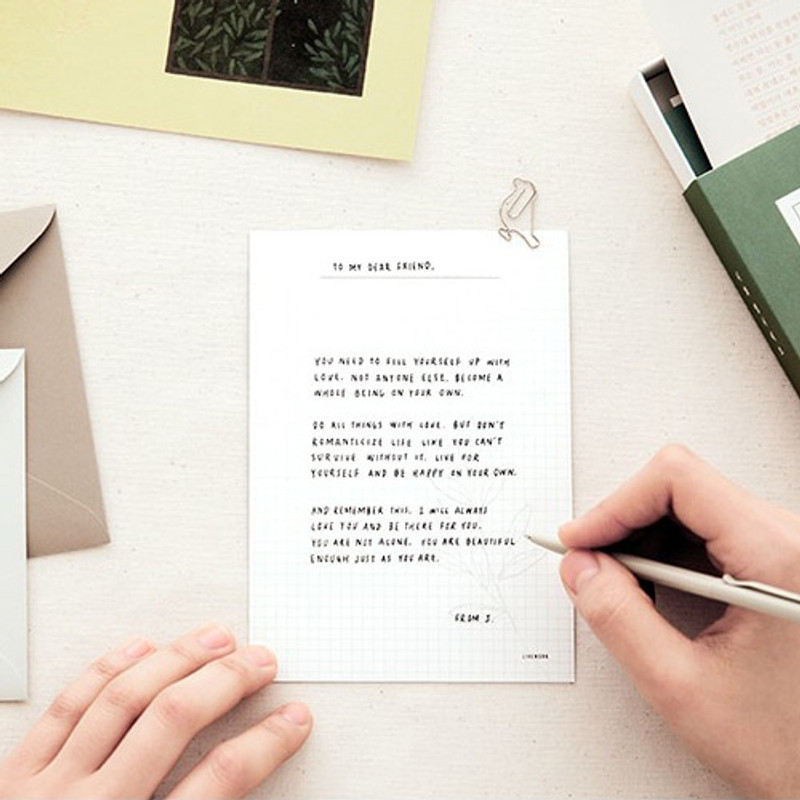 TO MY DEAR FRIEND,
YOU NEED TO FILL YOURSELF UP WITH
LOVE. NOT ANYONE ELSE. BECOME A
WHOLE BEING ON YOUR OWN.
DO ALL THINGS WITH LOVE. BUT DON'T
ROMANTICIZE LIFE LIKE YOU CAN'T
SURVIVE WITHOUT IT. LIVE FOR
YOURSELF AND BE HAPPY ON YOUR OWN.
AND REMEMBER THIS. I WILL ALWAYS
LOVE YOU AND BE THERE FOR YOU.
YOU ARE NOT ALONE. YOU ARE BEAUTIFUL
ENOUGH JUST AS YOU ARE.
FROM J.
LIVEWORK